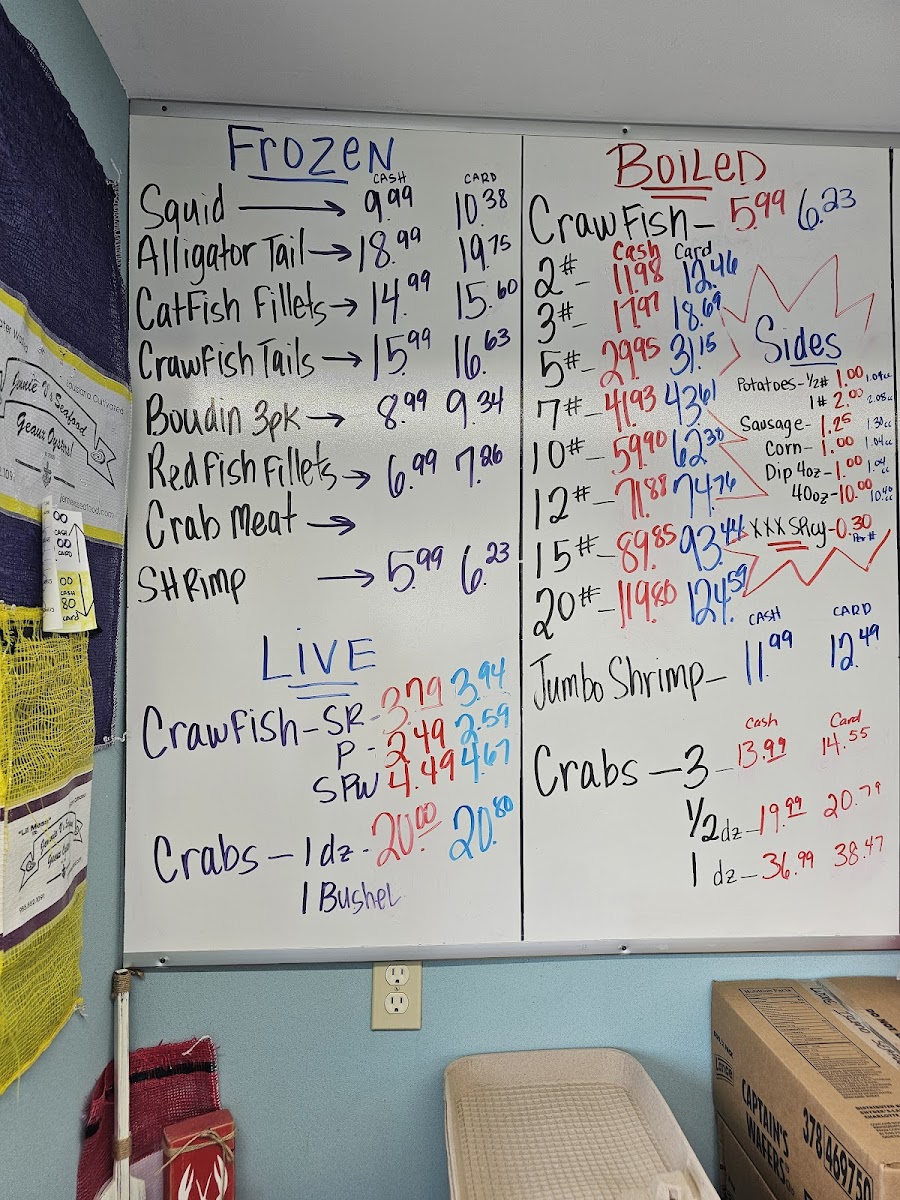 Frozen
CASH CARD
Squid → 9.99 10.38
Alligator Tail → 18.99 19.75
CatFish Fillets → 14.99 15.60
CrawFish Tails → 15.99 16.63
Boudin 3pk → 8.99 9.34
RedFish Fillets → 6.99 7.26
Crab Meat →
SHRimp → 5.99 6.23
LiVE
CrawFish - SR - 3.79 3.94
P - 2.49 2.59
SPW 4.49 4.67
Crabs - 1 dz - 20.00 20.80
1 Bushel
BoiLeD
CrawFish - 5.99 6.23
Cash Card
2# - 11.98 12.46
3# - 17.97 18.69
5# - 29.95 31.15
7# - 41.93 43.61
10# - 59.90 62.30
12# - 71.88 74.76
15# - 89.85 93.44
20# - 119.80 124.59
Sides
Potatoes - 1/2# 1.00 1.04cc
1# 2.00 2.08cc
Sausage - 1.25 1.30cc
Corn - 1.00 1.04cc
Dip 4oz - 1.00 1.04cc
40oz - 10.00 10.40cc
XXX SPicy - 0.30 Per #
CASH CARD
Jumbo Shrimp - 11.99 12.49
Cash Card
Crabs - 3 - 13.99 14.55
1/2 dz - 19.99 20.79
1 dz - 36.99 38.47
Louisiana Cultivated
Jamie V's Seafood
Geaux Oysters!
00
CASH
00
CARD
00
CASH
80
Card
Nutrition Facts
Lance
CAPTAIN'S
WAFERS
378469750
DISTRIBUTED
CHARLOTTE